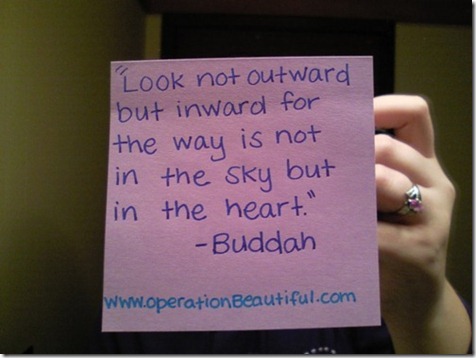 "Look not outward
but inward for
the way is not
in the sky but
in the heart."
-Buddah
www.operationBeautiful.com